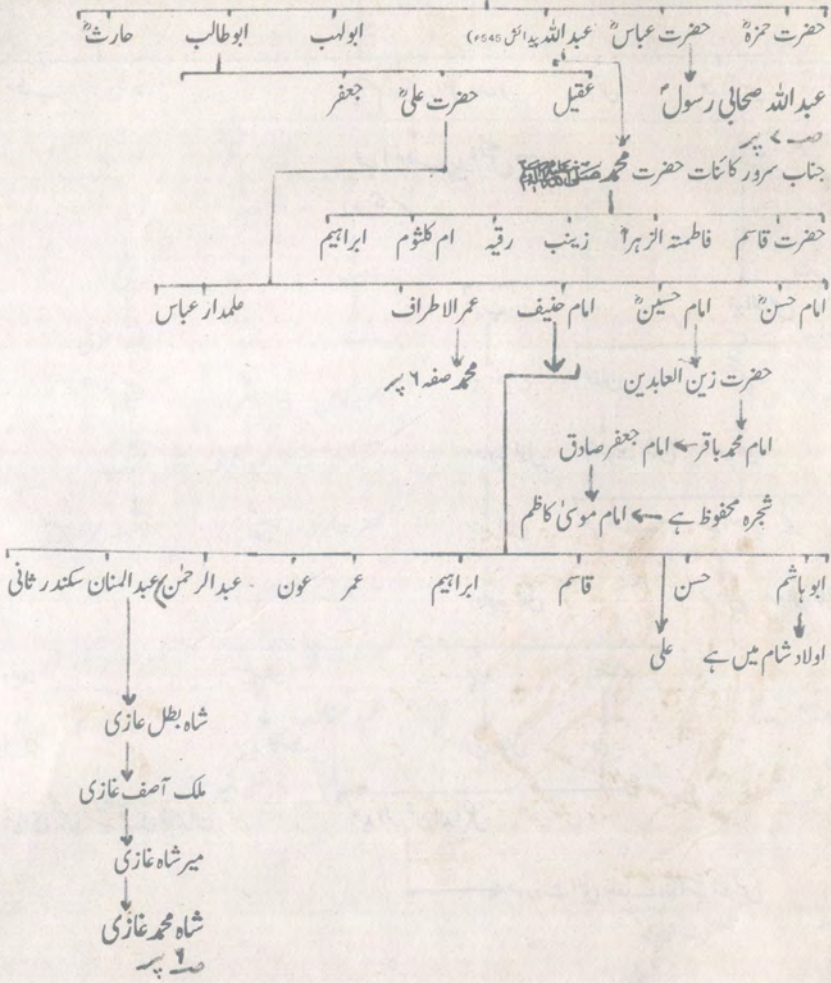 حضرت حمزہؓ حضرت عباسؓ عبداللہ پیدائش 545ء) ابولہب ابوطالب حارثؓ
عبداللہ صحابی رسولؐ عقیل حضرت علیؓ جعفر
صـ ۷ پر
جناب سرور کائنات حضرت محمد ﷺ
حضرت قاسم فاطمتہ الزہراؓ زینب رقیہ ام کلثوم ابراہیم
امام حسنؓ امام حسینؓ امام حنیف عمرالاطراف علمدار عباس
حضرت زین العابدین محمد صفہ ۶ پر
امام محمد باقر امام جعفر صادق
شجرہ محفوظ ہے امام موسیٰ کاظم
ابوہاشم حسن قاسم ابراہیم عمر عون عبدالرحمٰن) عبدالمنان سکندر ثانی
اولاد شام میں ہے علی
شاہ بطل غازی
ملک آصف غازی
میر شاہ غازی
شاہ محمد غازی
صـ ۶ پر